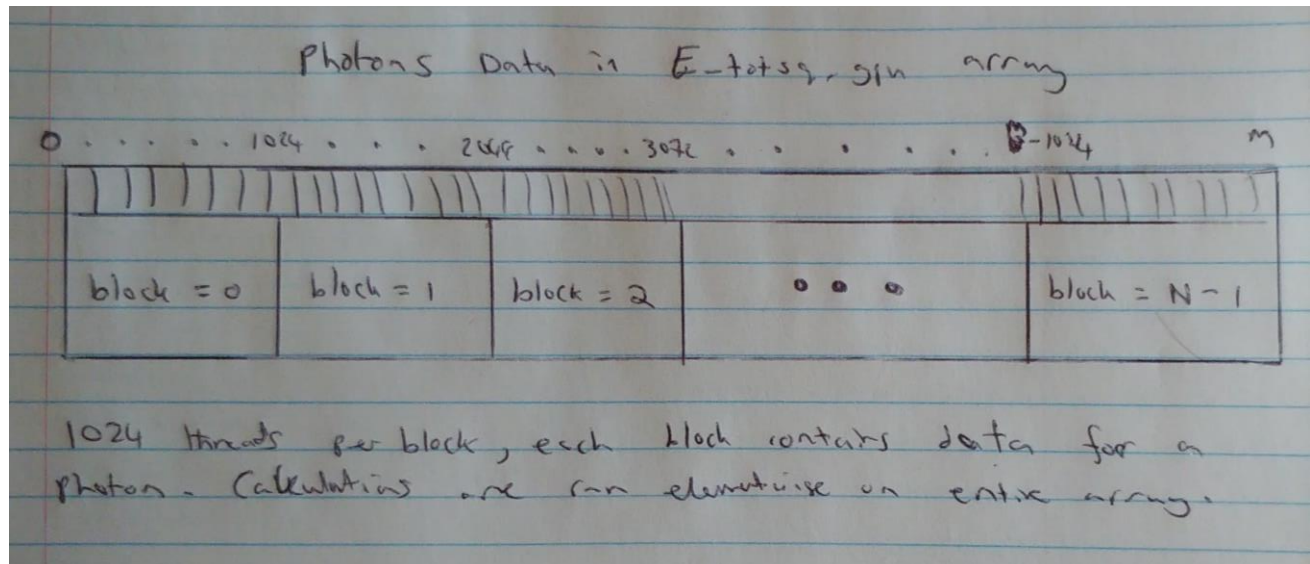 Photons Data in E_totsq_gpu array
0 . . . . . 1024 . . . 2048 . . . . 3072 . . . . . . -1024 M
block = 0 block = 1 block = 2 • • • block = N-1
1024 threads per block, each block contains data for a
photon. Calculations are ran elementwise on entire array.